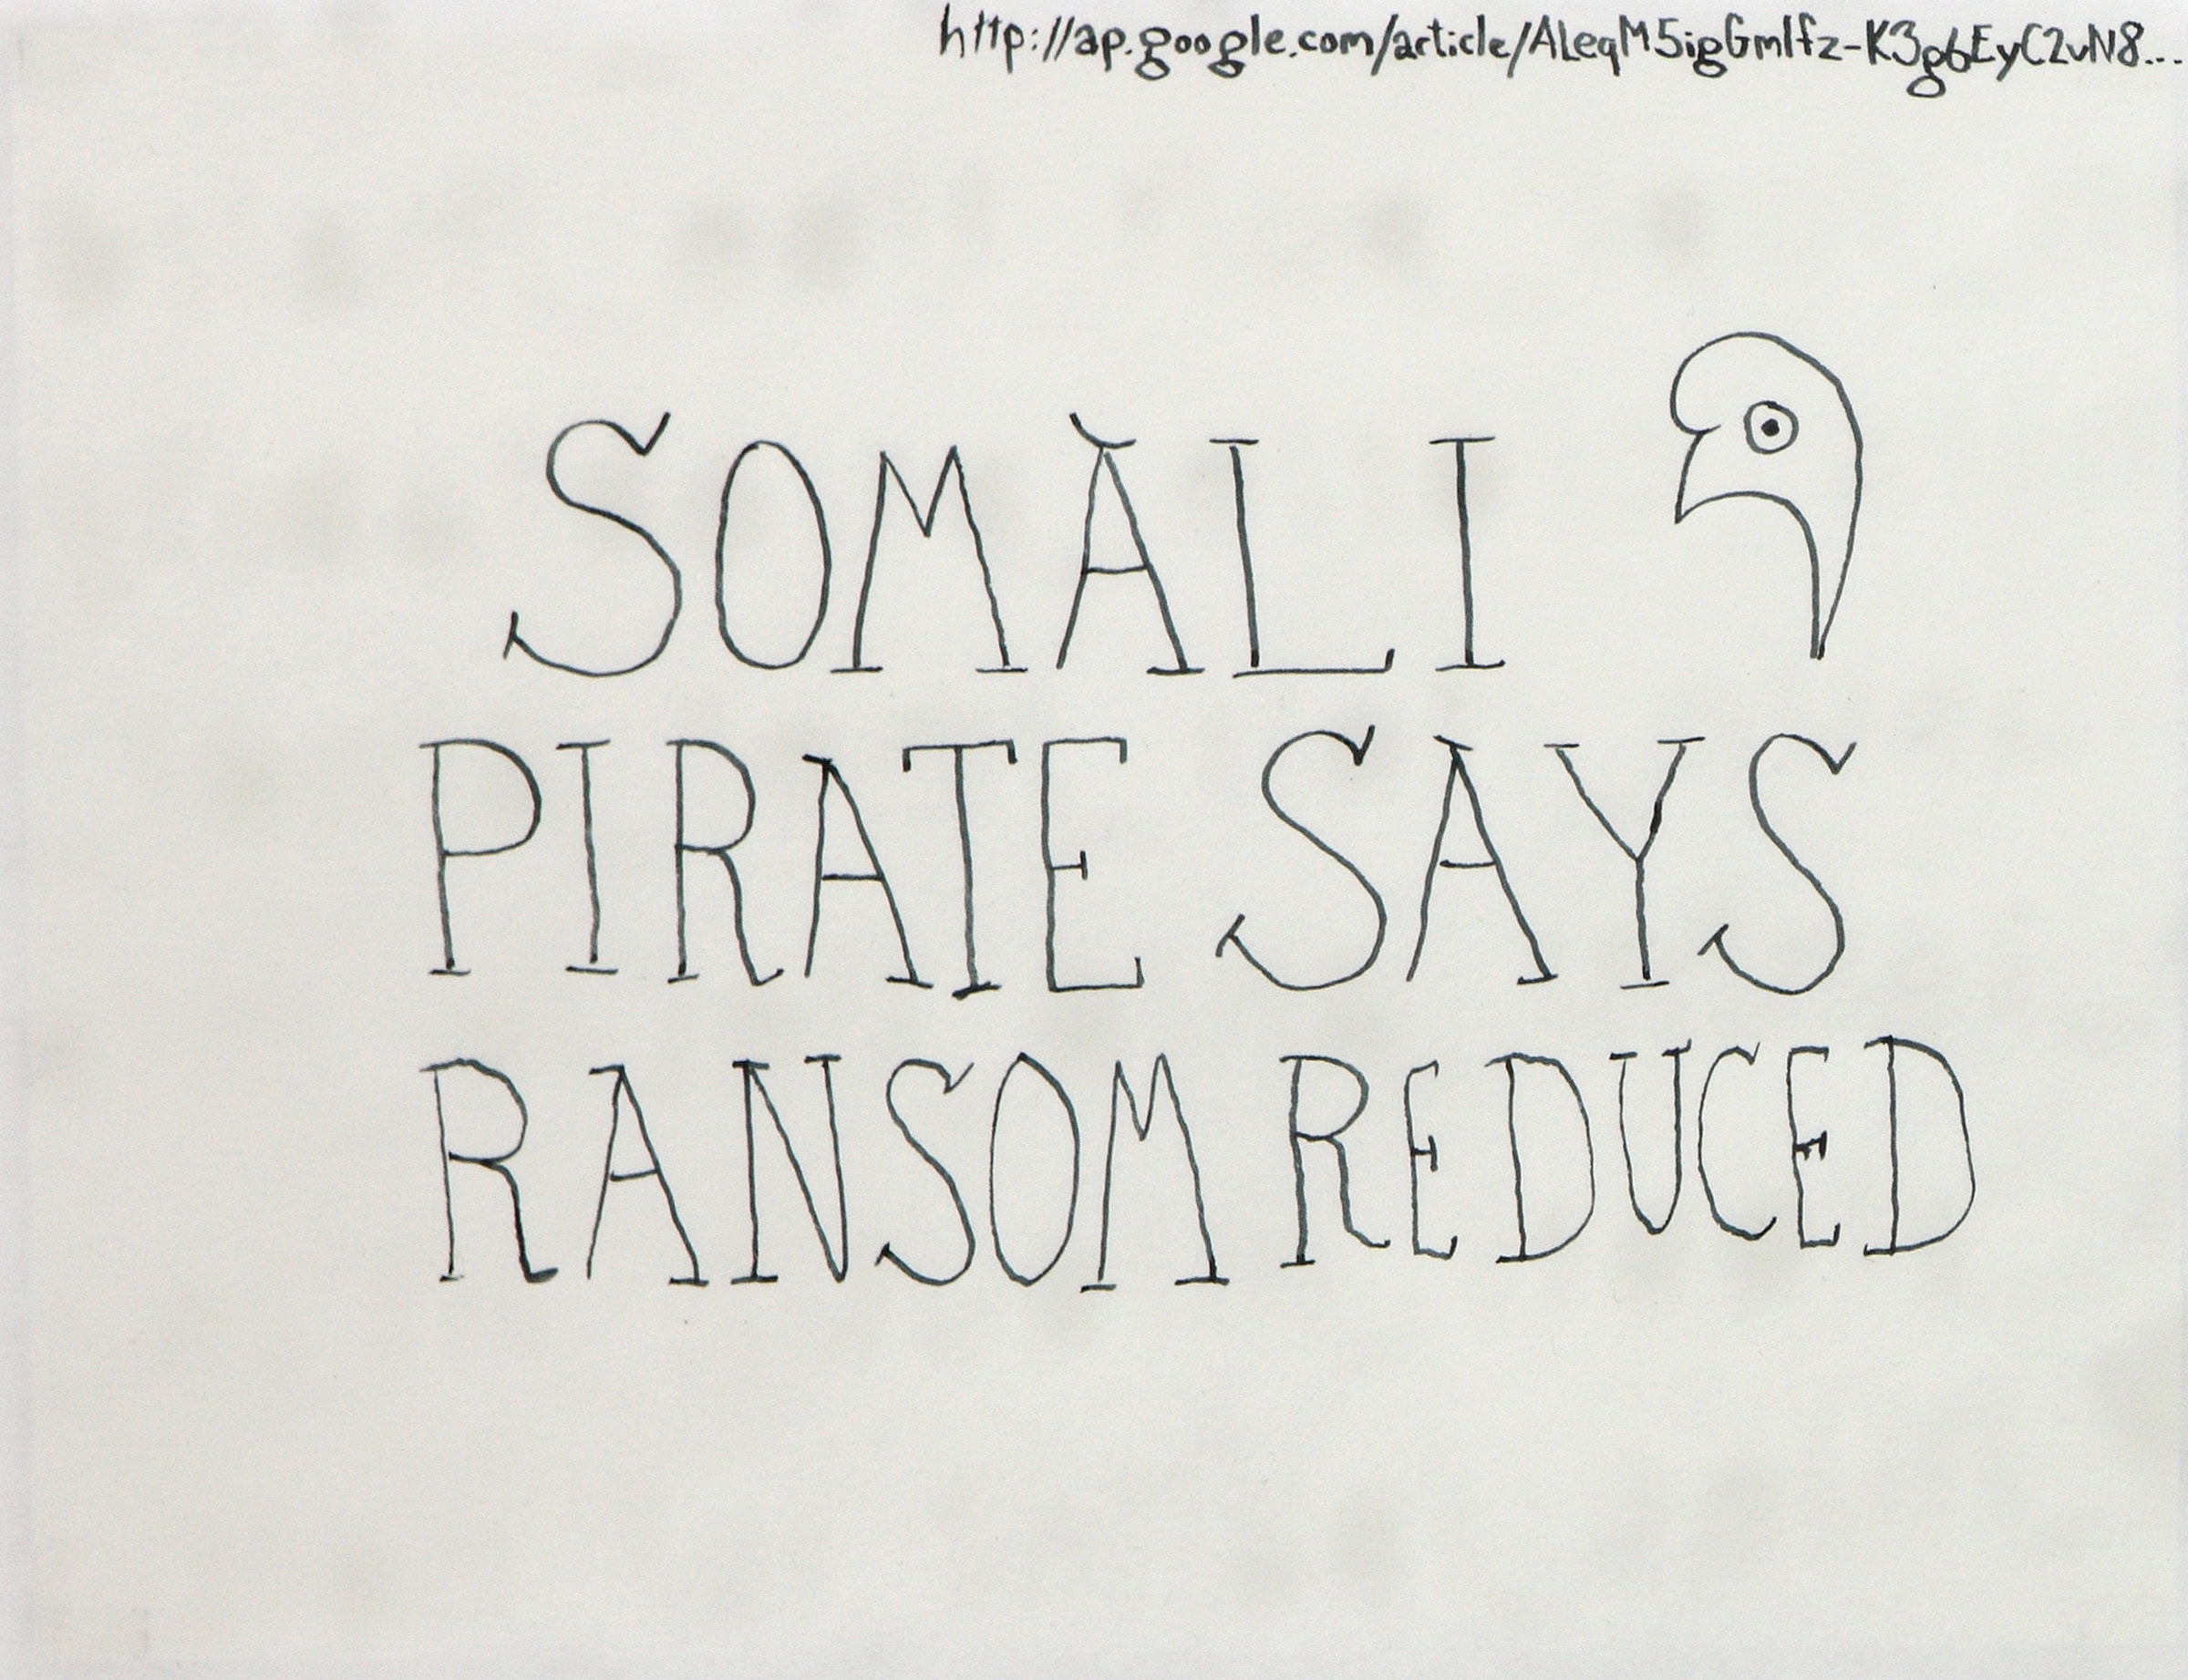 http://ap.google.com/article/ALeqM5igGmlfz-K3g6EyC2vN8...
SOMALI
PIRATE SAYS
RANSOM REDUCED